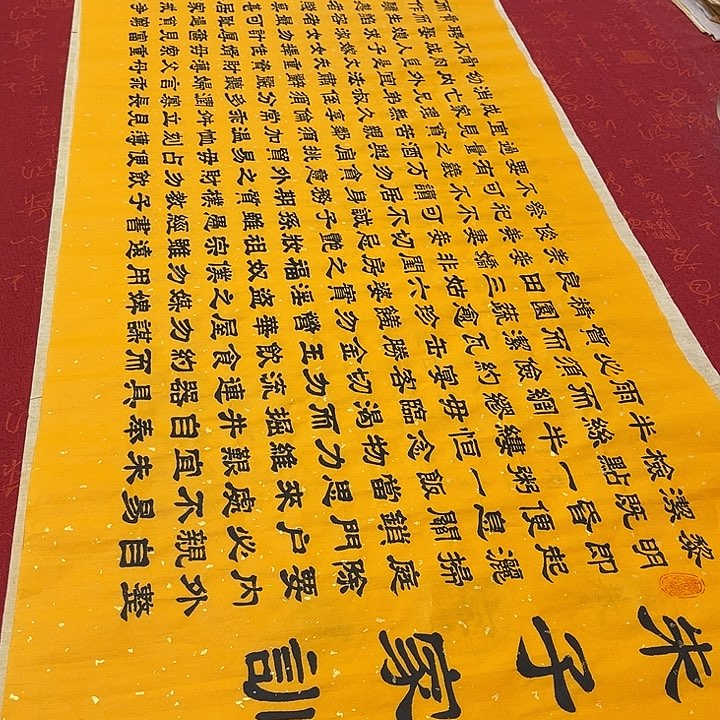 朱子家訓
黎明即起灑掃庭除要內外整
潔既昏便息關鎖門戶必親自
檢點一粥一飯當思來處不易
半絲半縷恒念物力維艱宜未
雨而綢繆毋臨渴而掘井自奉
必須儉約宴客切勿流連器具
質而潔瓦缶勝金玉飲食約而
精園蔬愈珍饈勿營華屋勿謀
良田三姑六婆實淫盜之媒婢
美妾嬌非閨房之福奴僕勿用
俊美妻妾切忌艷妝祖宗雖遠
祭祀不可不誠子孫雖愚經書
不可不讀居身務期質樸教子
要有義方勿貪意外之財勿飲
過量之酒與肩挑貿易毋占便
宜見貧苦親鄰須加溫恤刻薄
成家理無久享倫常乖舛立見
消亡兄弟叔姪須分多潤寡長
幼內外宜法肅辭嚴聽婦言乖
骨肉豈是丈夫重資財薄父母
不成人子嫁女擇佳婿毋索重
聘娶媳求淑女勿計厚奩見富